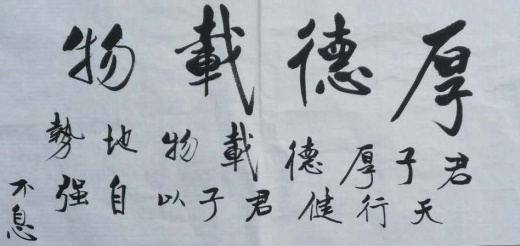 厚德載物
君子厚德載物地勢
天行健君子以自强不息